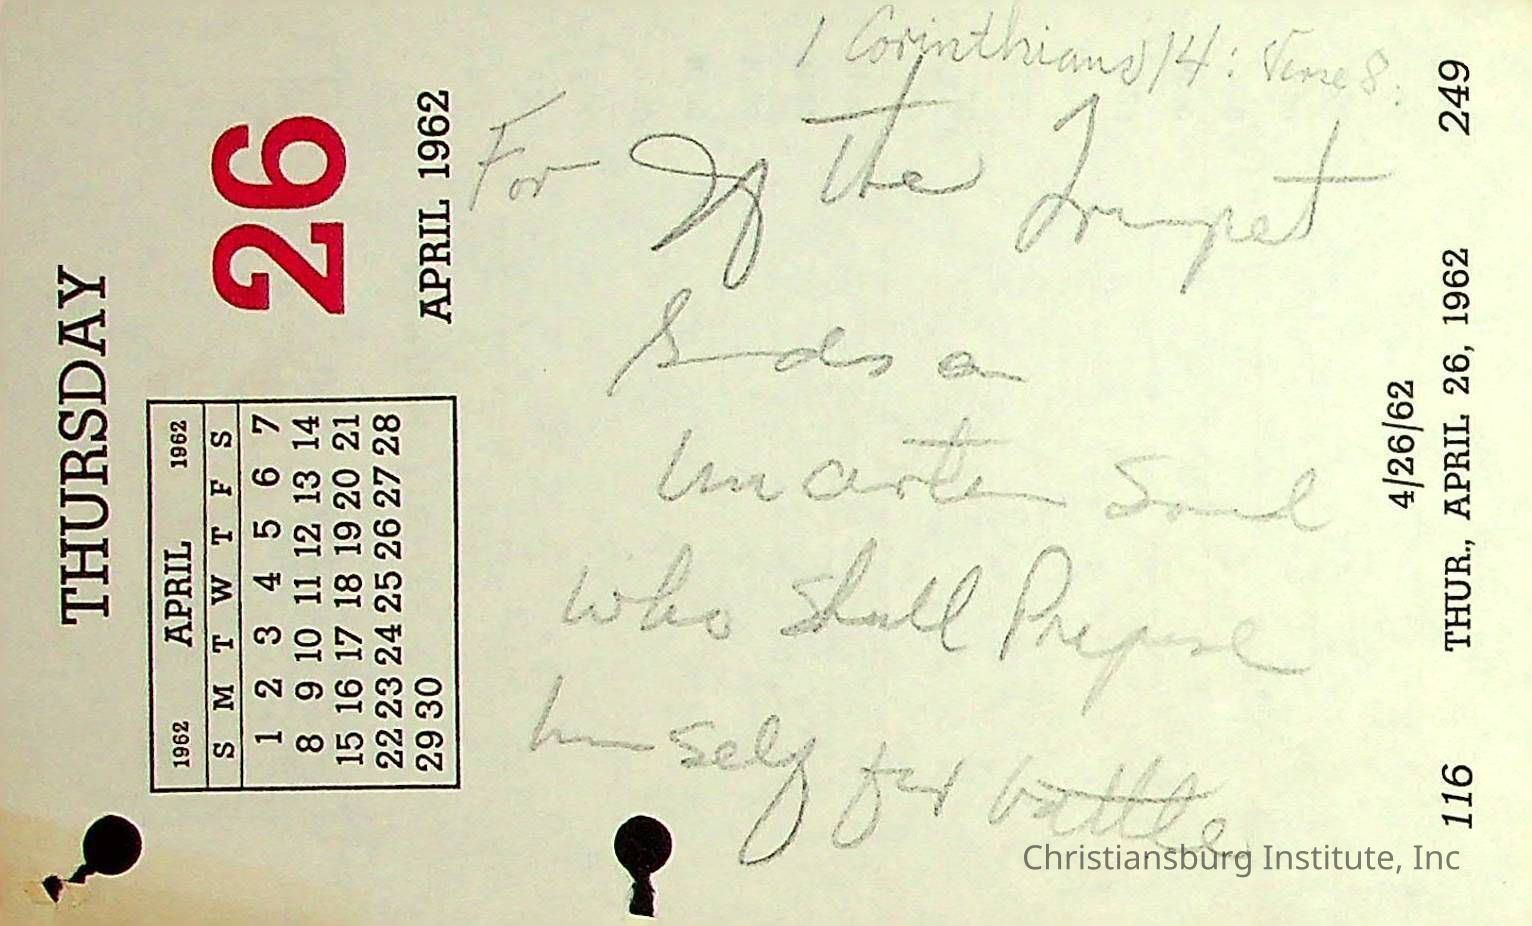 1 Corinthians 14: Verse 8.
For If the Trumpet
Sounds an
uncertain Sound
who shall Prepare
himself for battle
THURSDAY
26
APRIL 1962
1962 APRIL 1962
S M T W T F S
1 2 3 4 5 6 7
8 9 10 11 12 13 14
15 16 17 18 19 20 21
22 23 24 25 26 27 28
29 30
4/26/62
116 THUR., APRIL 26, 1962 249
Christiansburg Institute, Inc